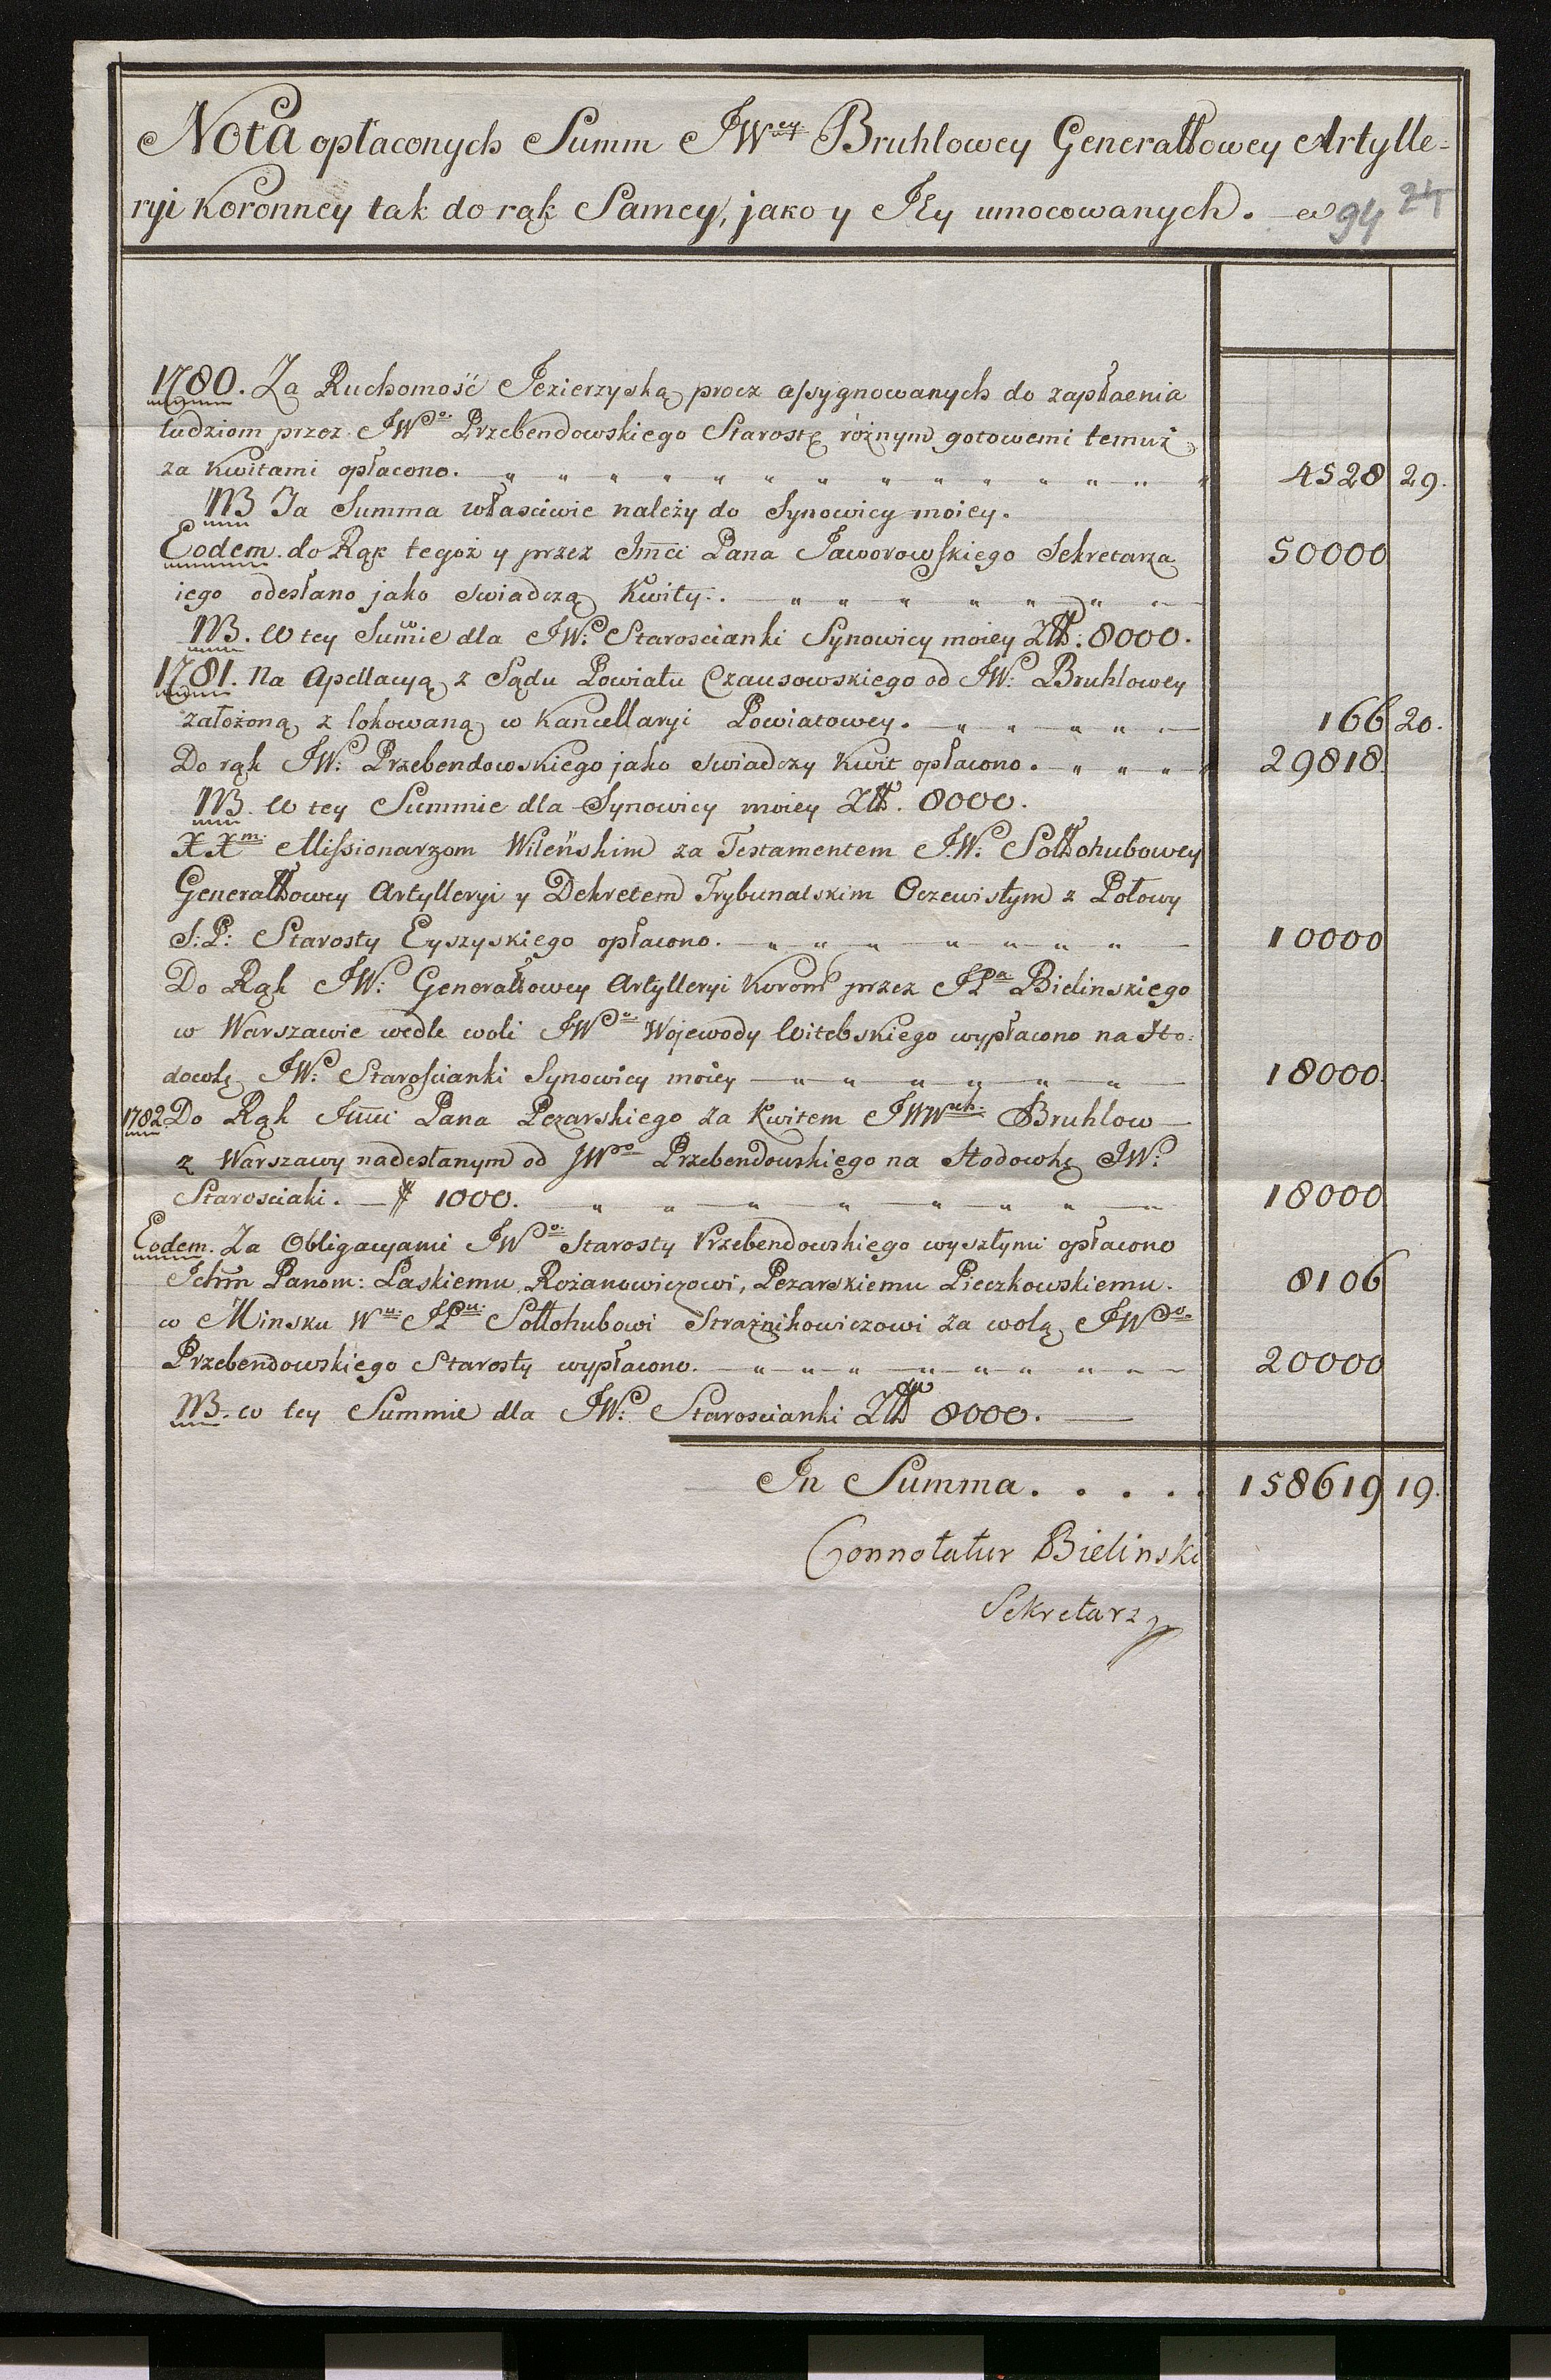 Nota opłaconych Summ JWey Bruhlowey Generałłowey Artylle=
ryi Koronney tak do rąk Samey, jako y JEy umocowanych.
94 24
1780. Za Ruchomość Jezierzyską procz assygnowanych do zapłaenia
ludziom przez JWo Przebendowskiego Starostę różnym gotowemi temuż
za Kwitami opłacono. 4528 29.
NB Ta Summa własciwie należy do Synowicy moiey.
Eodem do Rąk tegoż y przez Jmci Pana Jaworowskiego Sekretarza 50000
iego odesłano jako swiadczą Kwity.
NB. W tey Sumie dla JW: Staroscianki Synowicy moiey Złł: 8000.
1781. Na Apellacyą z Sądu Powiatu Czausowskiego od JW: Bruhlowey
założoną z lokowaną w Kancellaryi Powiatowey. 166 20.
Do rąk JW: Przebendowskiego jako swiadczy Kwit opłacono. 29818.
NB. W tey Summie dla Synowicy moiey Złł. 8000.
XXm Missionarzom Wileńskim za Testamentem J.W: Sołłohubowey
Generałłowey Artylleryi y Dekretem Trybunalskim Oczewistym z Połowy
S:P: Starosty Eyszyskiego opłacono. 10000
Do Rąk JW: Generałłowey Artylleryi Koron przez JPa Bielinskiego
w Warszawie wedle woli JWo Wojewody Witebskiego wypłacono na Ho:
dowlę JW: Starościanki Synowicy moiey 18000.
1782 Do Rąk Jmci Pana Pezarskiego za Kwitem JWWch Bruhlow
z Warszawy nadesłanym od JWo Przebendowskiego na Hodowlę JW:
Starosciaki. # 1000. 18000
Eodem. Za Obligacyami JWo Starosty Przebendowskiego wyszłymi opłacono
Ichm Panom: Laskiemu, Rożanowiczowi, Pezarskiemu Pieczkowskiemu. 8106
w Minsku Wu JPu Sołłohubowi Strażnikowiczowi za wolą JWo
Przebendowskiego Starosty wypłacono. 20000
NB. w tey Summie dla JW: Staroscianki Złł 8000.
In Summa..... 158619 19.
Connotatur Bielinski
Sekretarz